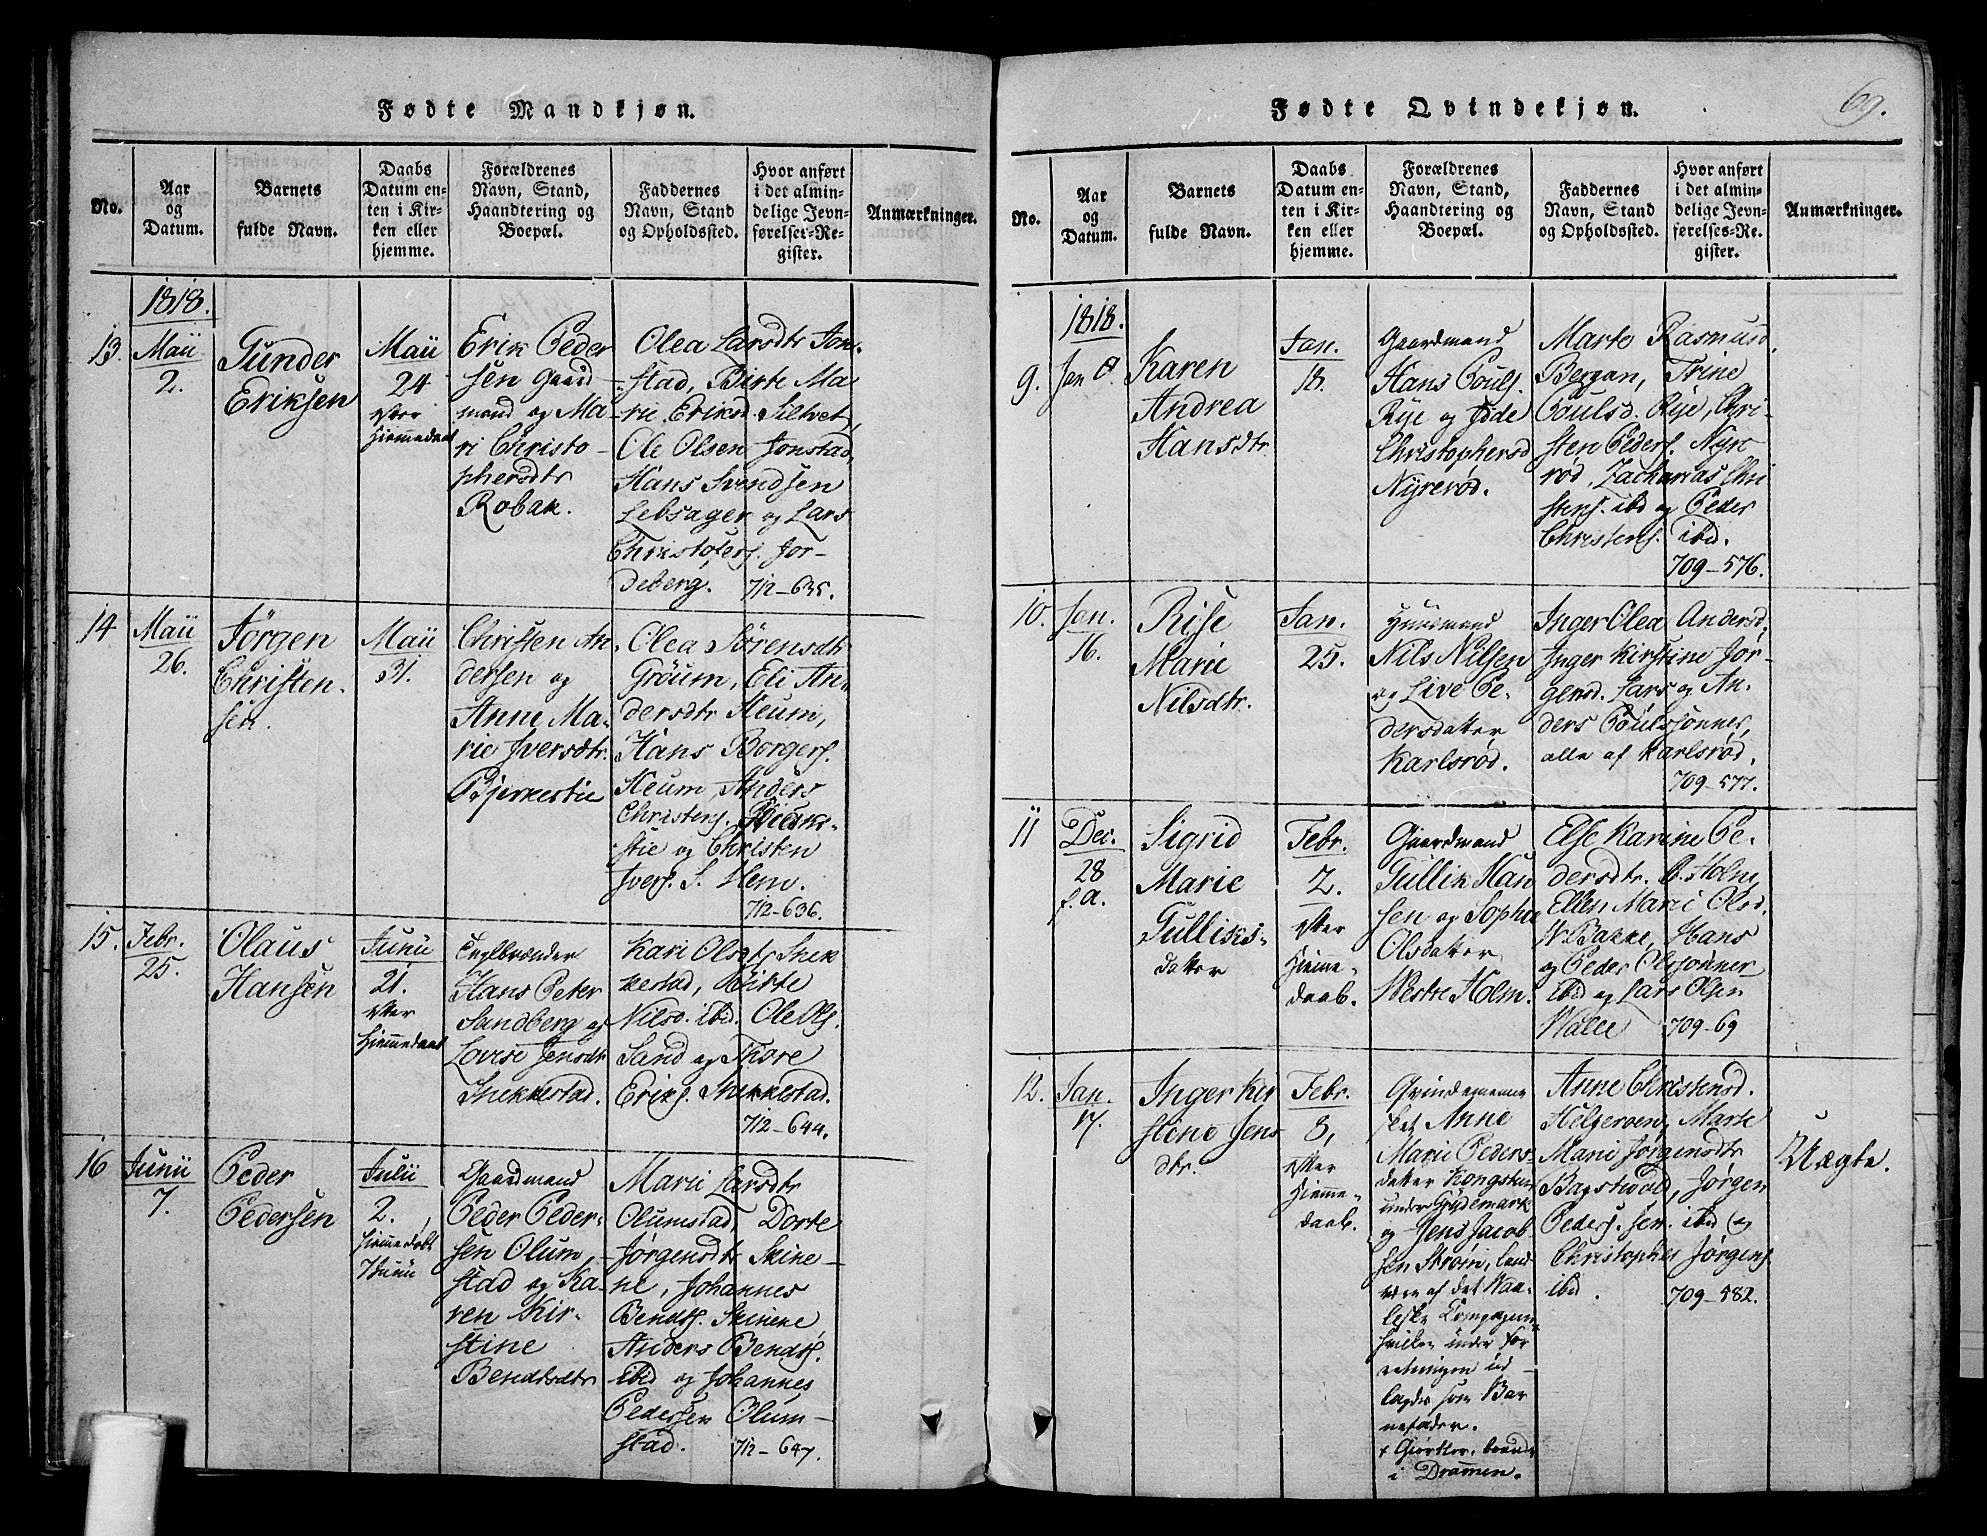 Fødte Mandkjøn.
No.
Aar
og
Datum.
Barnets
fulde Navn.
Daabs
Datum en-
ten i Kir-
ken eller
hjemme.
Forældrenes
Navn, Stand,
Haandtering og
Boepæl.
Faddernes
Navn, Stand
og Opholdssted.
Hvor anført
i det almin-
delige Jevn-
førelses-Re-
gister.
Anmærkninger.
1818.
13.
Maii
2.
Gunder
Eriksen
Maii
24
efter
Hiemmedaab
Erik Peder
sen Gaard-
mand og Ma-
ri Christo-
phersdtr
Robak.
Olea Larsdtr Jon-
stad, Birte Ma-
rie Eriksd. Siltvet,
Ole Olsen Jonstad,
Hans Svendsen
Lebsager og Lars
Christofers. For-
deberg.
712-635.
14
Maii
26.
Jørgen
Christen-
sen.
Maii
31.
Christen An-
dersen og
Anne Ma-
rie Iversdtr.
Bjerkestie
Olea Sørensdtr
Grøum, Eli An-
dersdtr Heum,
Hans Borgers.
Heum, Anders
Christens.
stie og Christen
Ivers. S. Hem.
712-636.
15.
Febr.
25.
Olaus
Hansen
Junii
21.
efter
Hiemmedaab
Teglbrænder
Hans Peter
Sandberg og
Lovise Jensdtr
Snekkestad.
Kari Olsdtr Snek
kestad, Birte
Nilsd. ibid. Ole Ols.
Sand og Thore
Eriks. Snekkestad.
712-644.
16
Junii
7.
Peder
Pedersen
Julii
2.
hiemmedøbt
7 Junii
Gaardmand
Peder Peder-
sen Olum-
stad og Ka-
ren Kir-
stine
Bendtsdtr
Marie Larsdtr
Olumstad, Dorte
Jørgensdtr Skine-
ne, Johannes
Bendts. Skinene
Anders Bendts.
ibid og Johannes
Pedersen Olum-
stad.
712-647.
Fødte Qvindekjøn.
69.
No.
Aar
og
Datum.
Barnets
fulde Navn.
Daabs
Datum en-
ten i Kir-
ken eller
hjemme.
Forældrenes
Navn, Stand,
Haandtering og
Boepæl.
Faddernes
Navn, Stand
og Opholdssted.
Hvor anført
i det almin-
delige Jevn-
førelses-Re-
gister.
Anmærkninger.
1818.
9.
Jan
Karen
Andrea
Hansdtr
Jan.
18.
Gaardmand
Hans Pouls.
Rye og Jøde
Christophersd
Nyrerød.
Marte Rasmusd.
Bergan, Trine
Poulsd. Rye, Chri-
sten Peders. Nyre
rød, Zacharias Chri
stens. ibd og Peder
Christens. ibid.
709-576.
10.
Jan.
16.
Rise
Marie
Nilsdtr.
Jan.
25.
Huusmand
Nils Nilsen
og Live Pe-
dersdatter
Karlsrød.
Inger Olea Andersd.
Inger Kirstine Jør-
gensd. Lars og An-
ders Poulssønner,
alle af Karlsrød.
709-577.
11
Dec.
28
f. a.
Sigrid
Marie
Gulliks-
datter
Febr.
2.
efter
Hieme-
daab.
Gaardmand
Gullik Han
sen og Sophie
Olsdatter
Westre Holm.
Else Karine Pe-
dersdtr. Ø. Holm,
Ellen Marie Olsd.
N. Bakke, Hans
og Peder Olssønner
ibid og Lars Olsen
Walle
709-69
12.
Jan.
17.
Inger Kir
stine Jens
dtr.
Febr.
8,
efter
Hieme-
daab.
Qvindemenne
sket Anne
Marie Peders-
datter Kongsten
under Gydemark
og Jens Jacob-
sen Strøm, Land
værn af det Waa-
leske Compagnie
hvilken under for
retningen ud
lagdes som Bar
nefader.
+ Giørtler, boende
i Drammen.
Anne Christensd.
Helgeroen, Marte
Marie Jørgensdtr
Bagstvold, Jørgen
Peders. sen. ibid og
Christopher Jørgens.
ibid.
709-582.
Uægte.